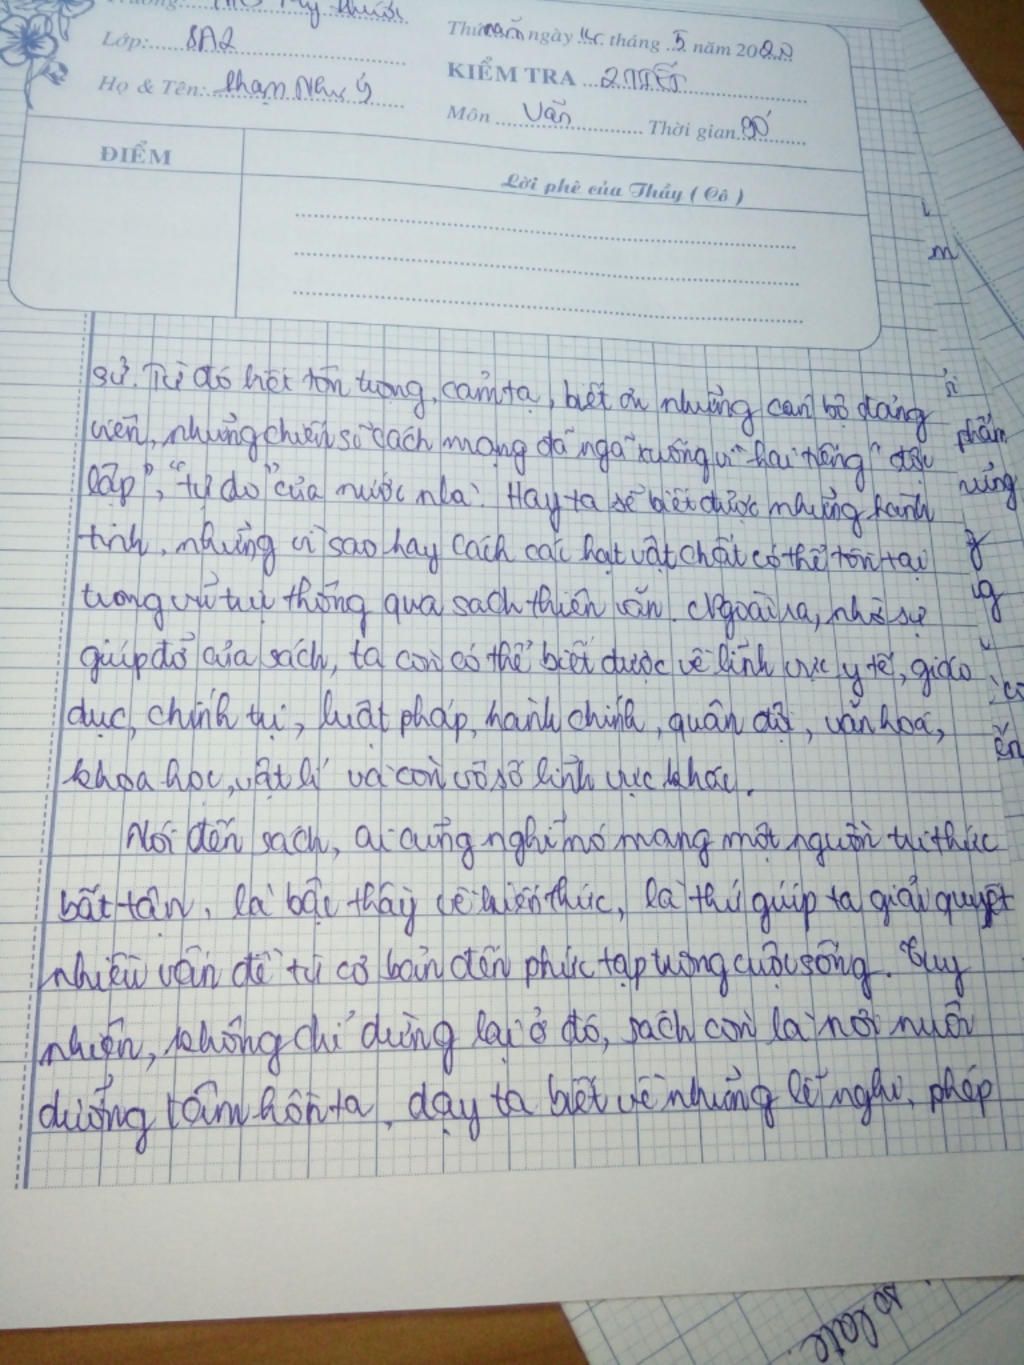 Lớp: 8A2
Họ & Tên: Phạm Như Ý
Thứ năm ngày 14 tháng 5 năm 2020
KIỂM TRA 2 TIẾT
Môn Văn Thời gian 90'
ĐIỂM
Lời phê của Thầy ( Cô )
sử. Từ đó biết tôn trọng, cảm tạ, biết ơn những cán bộ đảng
viên, những chiến sĩ cách mạng đã ngã xuống vì hai tiếng "độc
lập", "tự do" của nước nhà. Hay ta sẽ biết được những hành
tinh, những vì sao hay cách các hạt vật chất có thể tồn tại
trong vũ trụ thông qua sách thiên văn. Ngoài ra, nhờ sự
giúp đỡ của sách, ta còn có thể biết được về lĩnh vực y tế, giáo
dục, chính trị, luật pháp, hành chính, quân đội, văn hoá,
khoa học, vật lí và còn vô số lĩnh vực khác.
Nói đến sách, ai cũng nghĩ nó mang một nguồn tri thức
bất tận, là bậc thầy về kiến thức, là thứ giúp ta giải quyết
nhiều vấn đề từ cơ bản đến phức tạp trong cuộc sống. Tuy
nhiên, không chỉ dừng lại ở đó, sách còn là nơi nuôi
dưỡng tâm hồn ta, dạy ta biết về những lễ nghi, phép